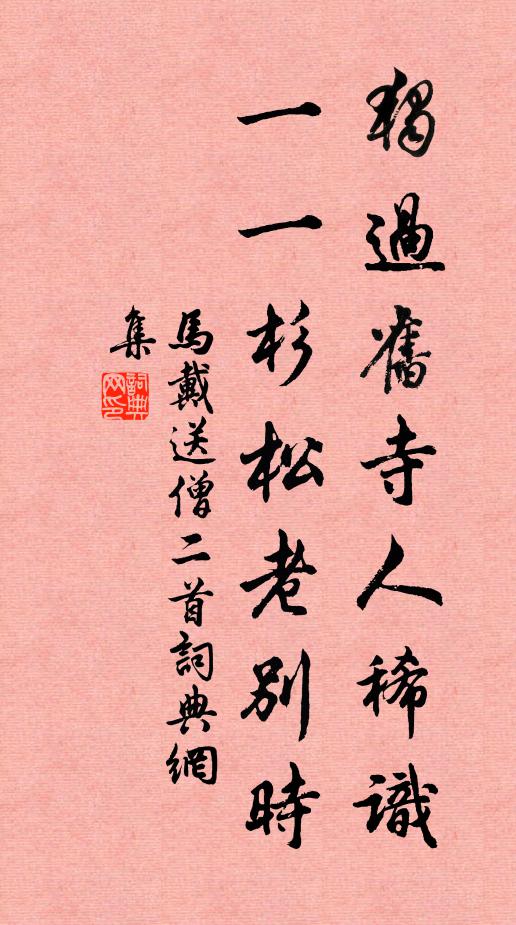 獨過舊寺人稀識
一一杉松老別時
馬戴送僧二首詞典網
集
詞典网印